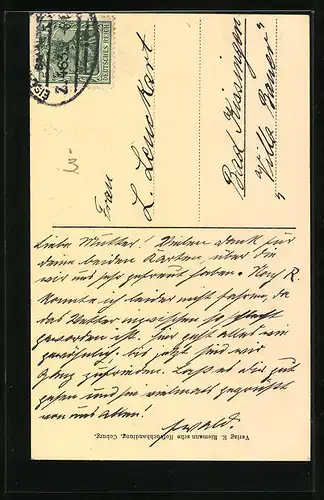 DEUTSCHES REICH
Frau
L. Leuckart
Bad Kissingen
"Villa Bauer"
Liebe Mutter! Vielen Dank für
deine beiden Karten, über die
wir uns sehr gefreut haben. Nach R.
konnte ich leider nicht fahren, da
das Wetter inzwischen so schlecht
geworden ist. Hier geht alles wie
gewöhnlich. Bis jetzt sind wir
ganz zufrieden. Lass es dir gut
gehen und sei vielmals gegrüsst
von uns Allen!
Ewald.
Verlag E. Riemann'sche Hofbuchhandlung, Coburg.